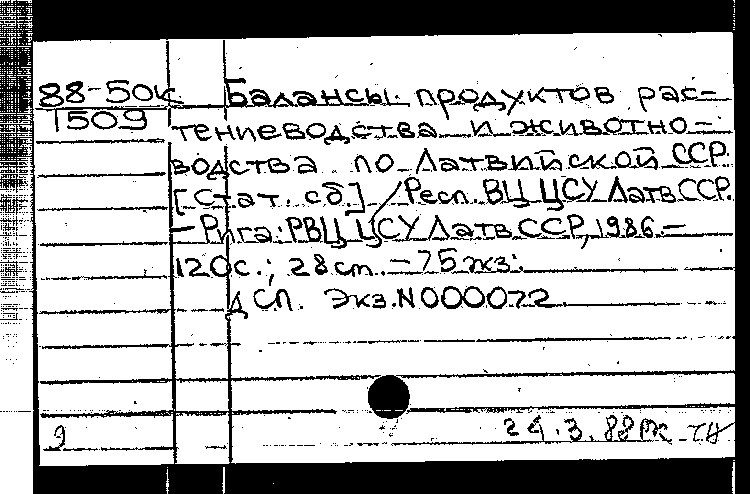 88-50к Балансы продуктов рас-
1509 тениеводства и животно-
водства по Латвийской ССР.
[Стат. сб.] / Респ. ВЦ ЦСУ Латв ССР.
— Рига: РВЦ ЦСУ Латв ССР, 1986. —
120с.; 28 см. — 75 экз.
ДСП. Экз. N 000072.
9 24.3.88